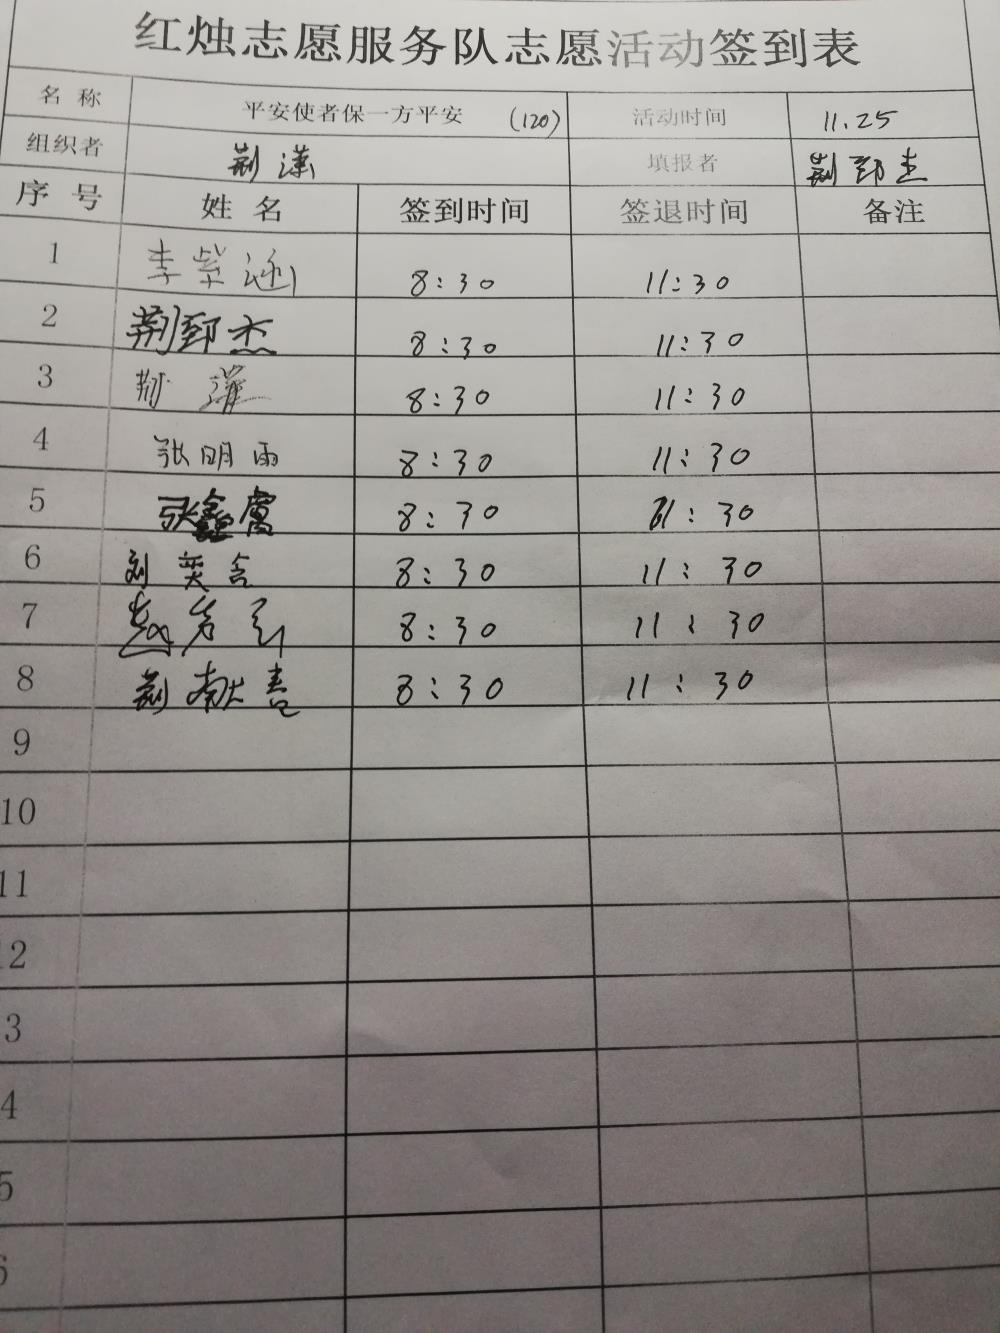 红烛志愿服务队志愿活动签到表
名 称 平安使者保一方平安 (120) 活动时间 11.25
组织者 荆潇 填报者 荆郅杰
序 号 姓 名 签到时间 签退时间 备注
1 李紫涵 8:30 11:30
2 荆郅杰 8:30 11:30
3 8:30 11:30
4 张明雨 8:30 11:30
5 张鑫 8:30 11:30
6 刘奕含 8:30 11:30
7 赵 8:30 11:30
8 荆献善 8:30 11:30
9
10
11
12
3
4
5
6